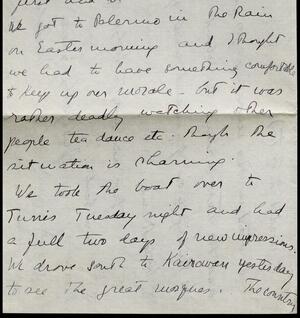 first
We got to Palermo in the Rain
on Easter morning and I thought
we had to have something comfortable
to keep up our morale - but it was
rather deadly watching other
people tea dance etc. though the
situation is charming.
We took the boat over to
Tunis Tuesday night and had
a full two days of new impressions.
We drove south to Kairawan yesterday
to see the great mosques. The country